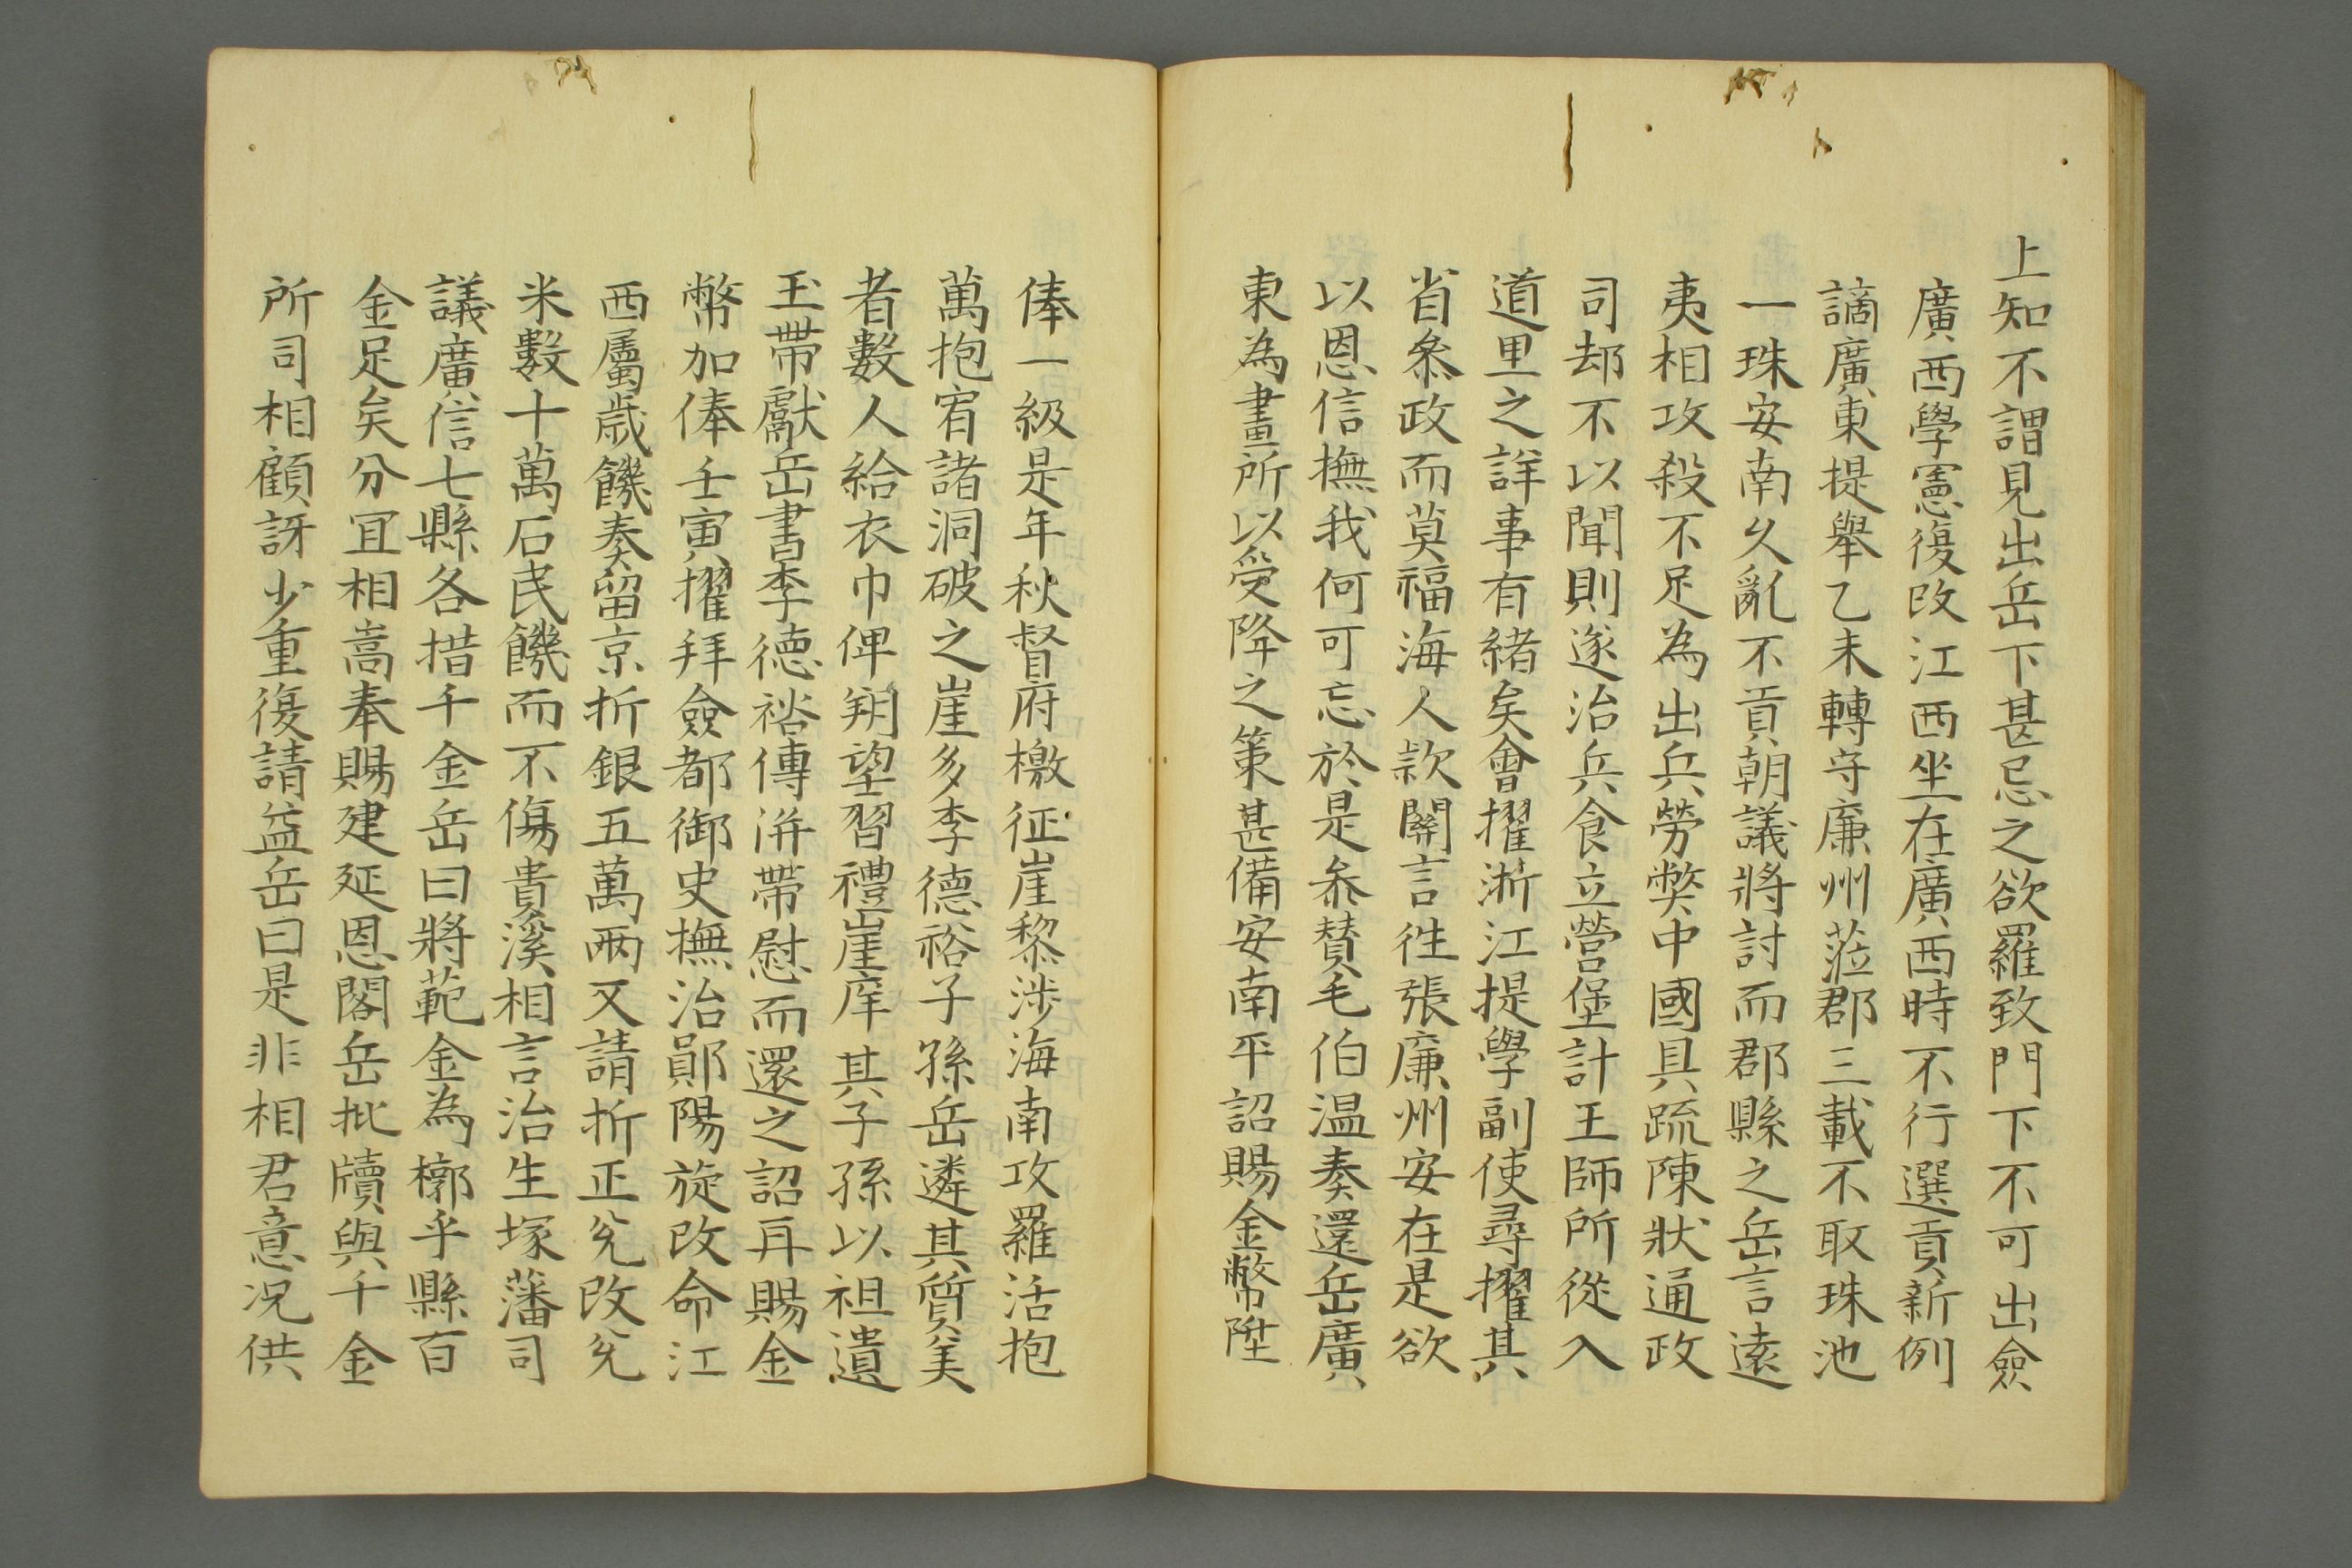 上知不謂見出岳下甚忌之欲羅致門下不可出僉
廣西學憲復改江西坐在廣西時不行選貢新例
謫廣東提舉乙未轉守廉州蒞郡三載不取珠池
一珠安南久亂不貢朝議將討而郡縣之岳言遠
夷相攻殺不足為出兵勞獘中國具疏陳狀通政
司却不以聞則遂治兵食立營堡計王師所從入
道里之詳事有緒矣會擢浙江提學副使尋擢其
省叅政而莫福海人款關言徃張廉州安在是欲
以恩信撫我何可忘於是叅賛毛伯温奏還岳廣
東為畫所以受降之策甚備安南平詔賜金幣陞
俸一級是年秋督府檄征崖黎渉海南攻羅活抱
萬抱宥諸洞破之崖多李德裕子孫岳遴其質美
者數人給衣巾俾朔望習禮崖庠其子孫以祖遺
玉帶獻岳書李德裕傳洴帶慰而還之詔再賜金
幣加俸壬寅擢拜僉都御史撫治鄖陽旋改命江
西屬歲饑奏留京折銀五萬兩又請折正兊改兊
米數十萬石民饑而不傷貴溪相言治生塚藩司
議廣信七縣各措千金岳曰將範金為槨乎縣百
金足矣分冝相嵩奉賜建延恩閣岳批牘與千金
所司相顧訝少重復請益岳曰是非相君意况供